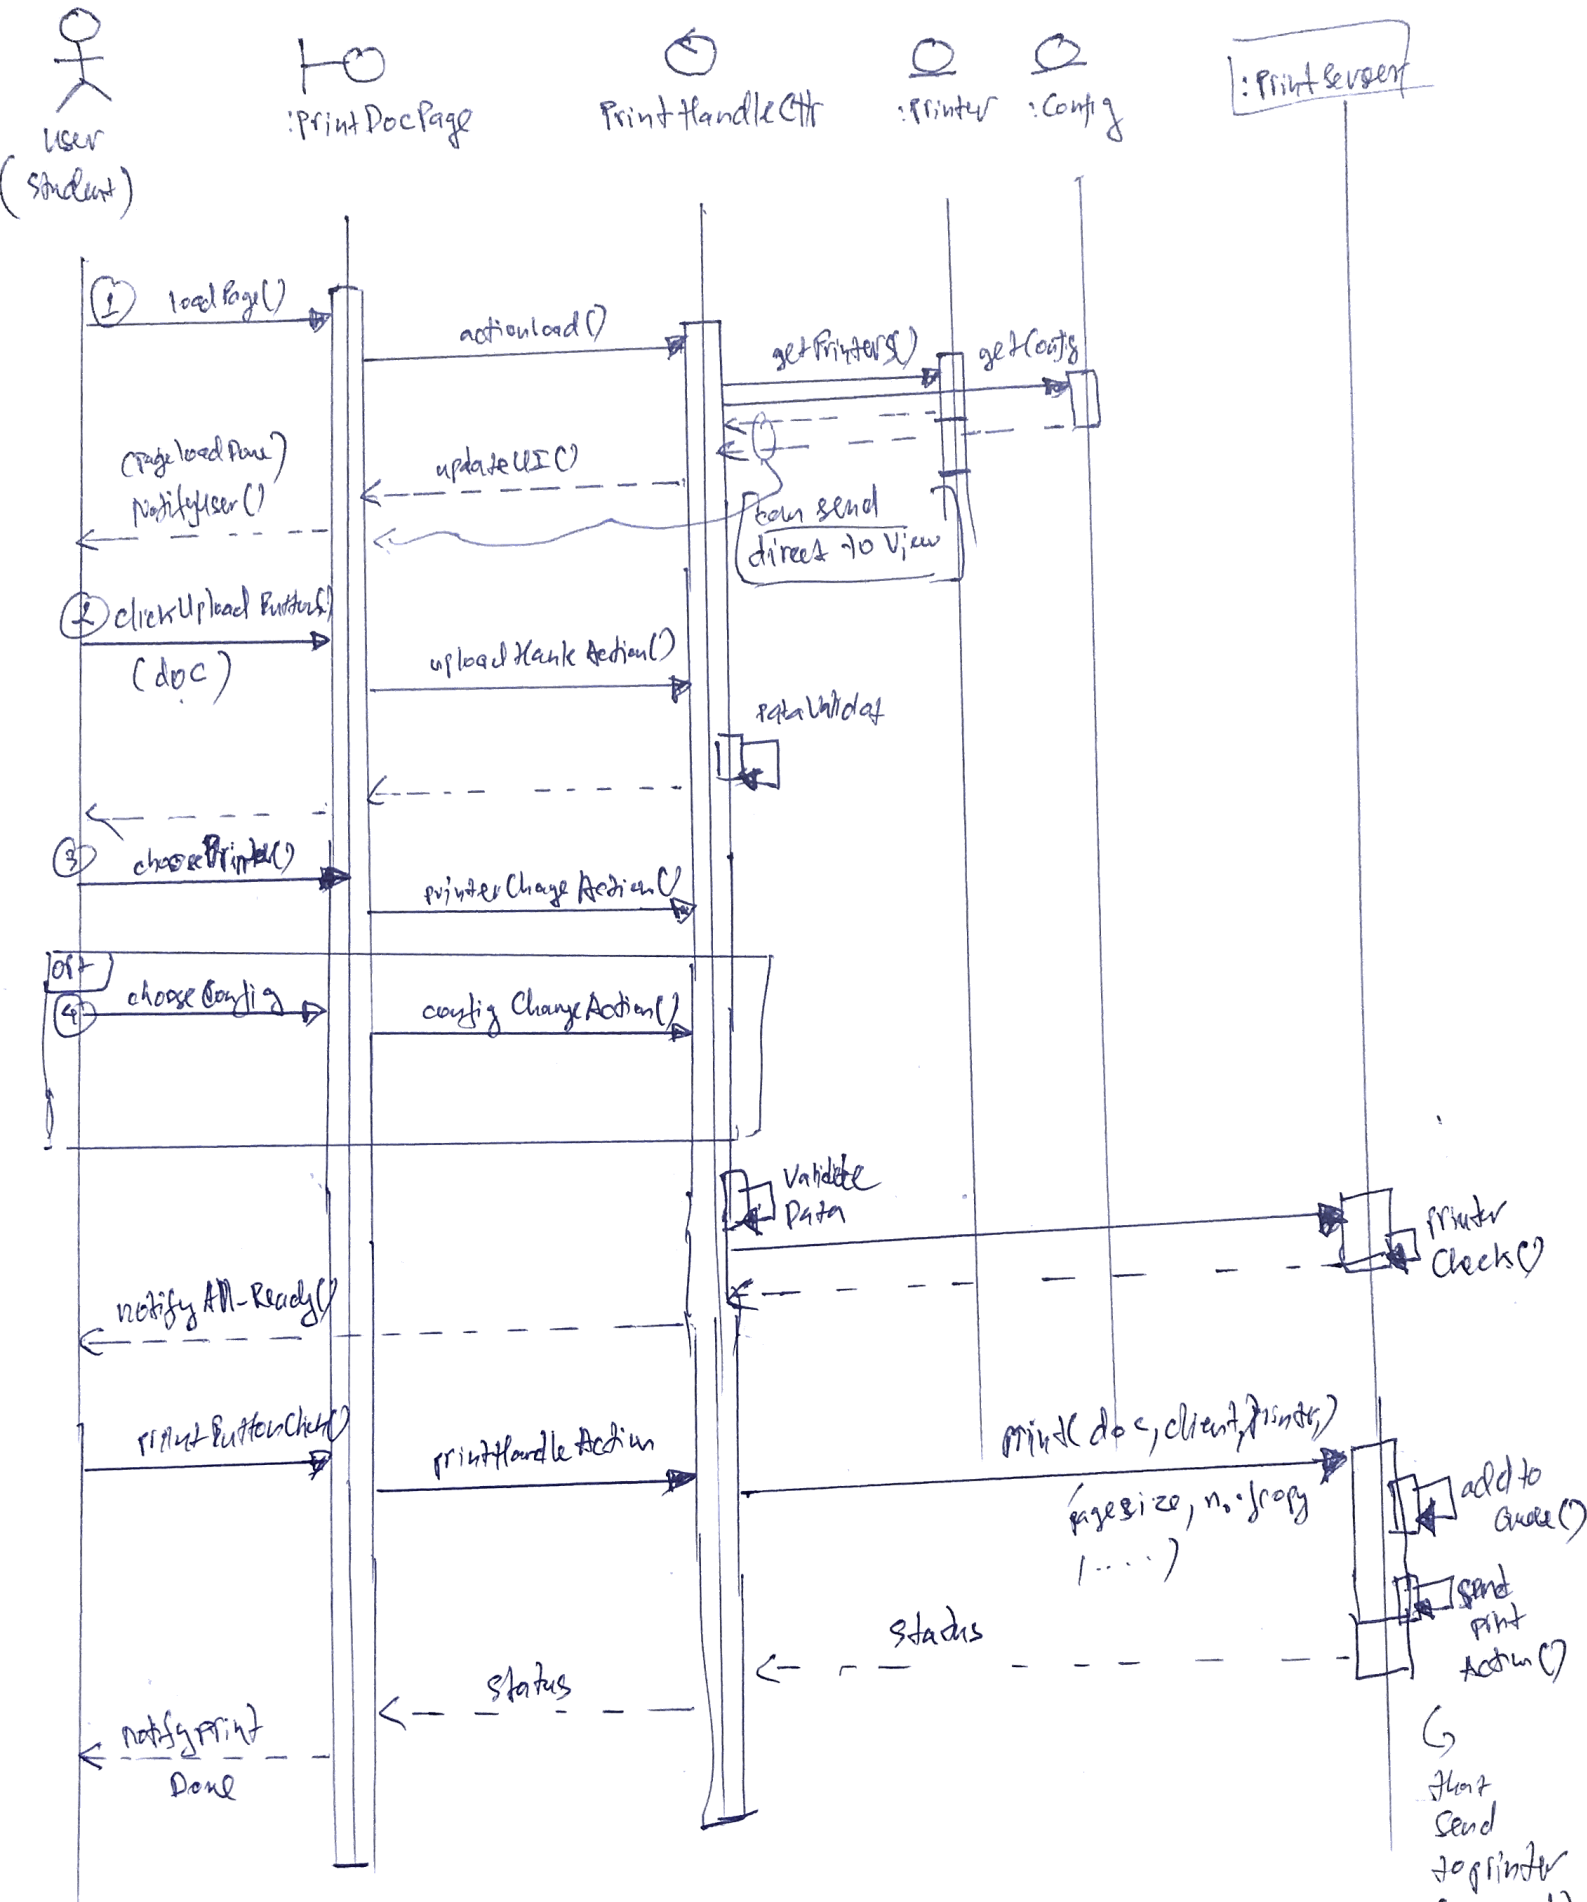 user
(student)
:PrintDocPage
PrintHandleCtlr
:Printer
:Config
:PrintServer
1 loadPage()
actionload()
getPrinters()
getConfig
(PageloadDone)
NotifyUser()
updateUI()
can send
direct to View
2 clickUpload Button()
(doc)
upload Action()
DataValidat
3 choosePrinter()
printerChageAction()
opt
4 chooseConfig
config ChangeAction()
Validate
Data
printer
Check()
notifyAll-Ready()
printButtonClick()
printHandleAction
print( doc, client, printer,)
pagesize, no.fcopy
, ....)
add to
send
print
Action()
status
status
notifyprint
Done
that
send
to printer